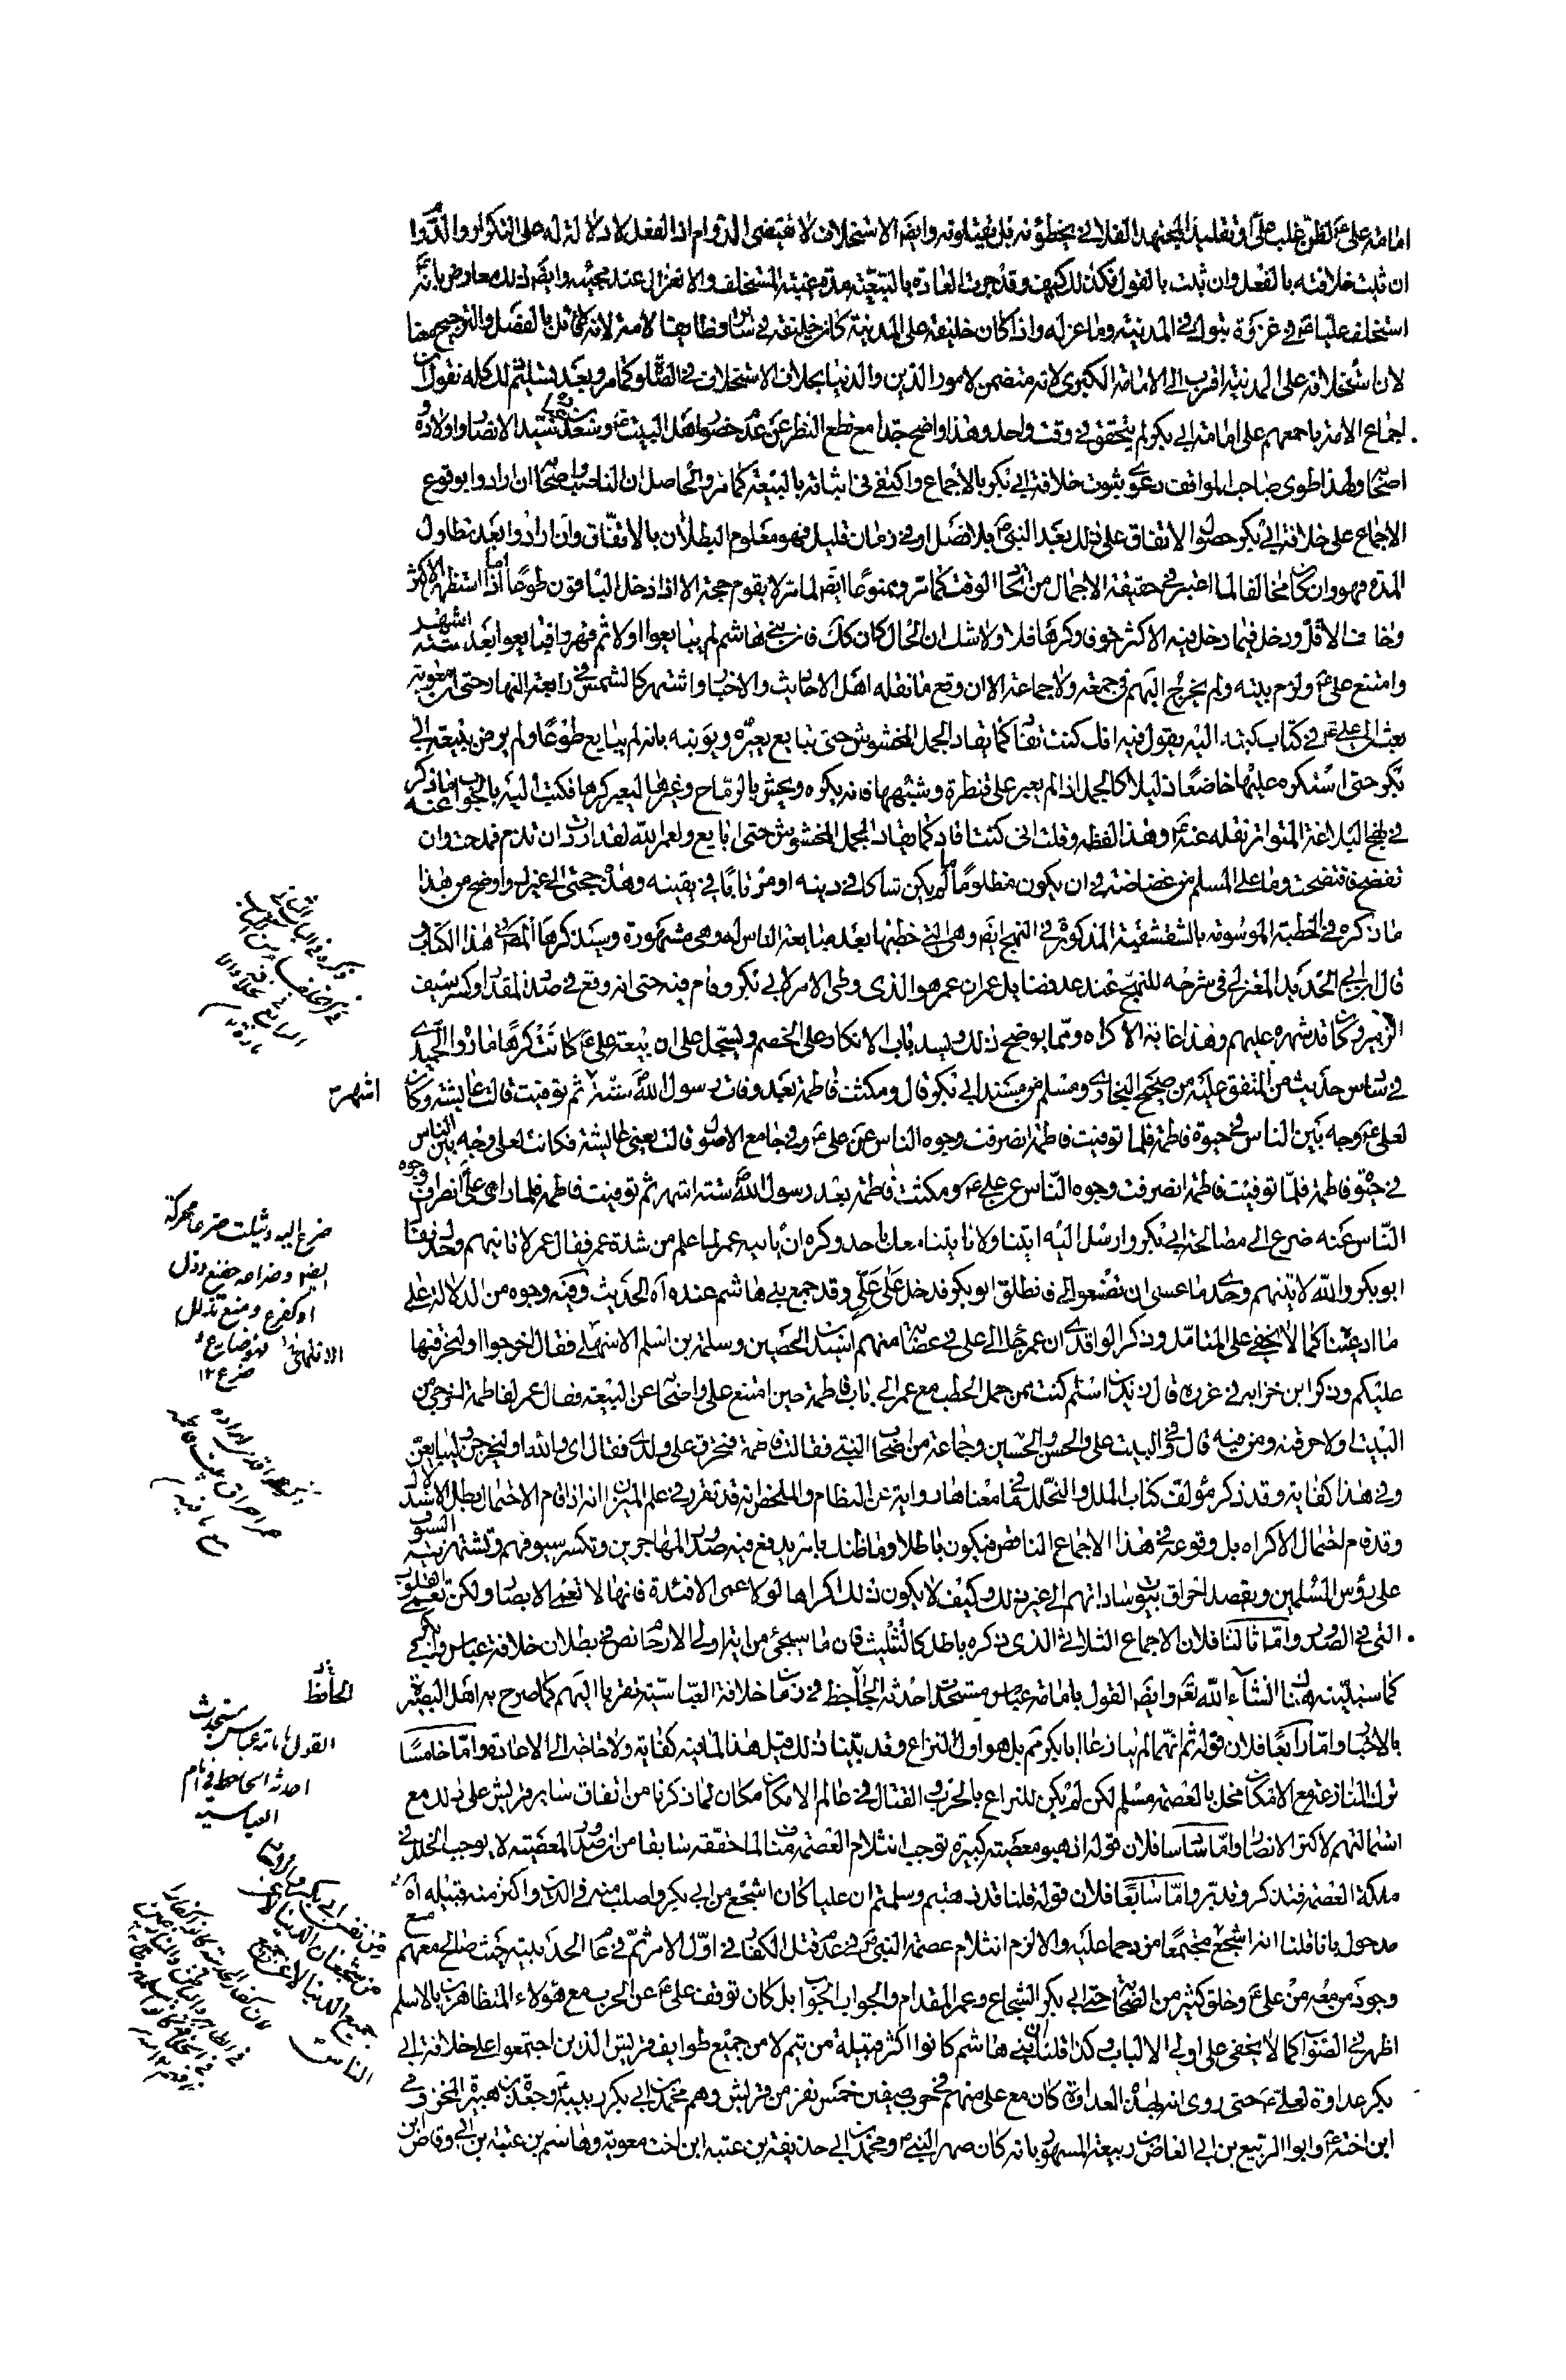 امامة علي لظن غلب على او تقليد المجتهد الفلاني يخطؤنه بل يقتلونه وايضا الاستخلاف لا يقتضي الدوام اذ الفعل لا دلالة له على التكرار والدوام
ان ثبت خلافته بالفعل وان ثبت بالقول فكذلك كيف وقد جرت العادة بالتبعية مدة غيبة المستخلف والانعزال عند مجيئه وايضا ذلك معارض بانه
استخلف عليا ع في غزوة تبوك في المدينة وما عزله واذا كان خليفة على المدينة كان خليفة في سائر وظايف الامة لانه لا قائل بالفصل والترجيح معنا
لان استخلافه على المدينة اقرب الى الامامة الكبرى لانه متضمن لامور الدين والدنيا بخلاف الاستخلاف في الصلوة كما مر وبعد تسليم ذلك كله نقول ان
اجماع الامة باجمعهم على امامة ابي بكر لم يتحقق في وقت واحد وهذا واضح جدا مع قطع النظر عن عدم حضور اهل البيت ع وسعد بن عبادة سيد الانصار واولاده و
اصحابه ولهذا طوى صاحب المواقف دعوى ثبوت خلافة ابي بكر بالاجماع واكتفى في اثباته بالبيعة كما مر والحاصل ان الناصب واصحابه ان ارادوا بوقوع
الاجماع على خلافة ابي بكر حصول الاتفاق على ذلك بعد النبي ص بلا فصل او في زمان قليل فهو معلوم البطلان بالاتفاق وان ارادوا بعد تطاول
المدة فهو وان كان مخالفا لما اعتبر في حقيقة الاجمال من اتحاد الوقت كما مر وممنوعا ايضا لما مر لا يقوم حجة الا اذا دخل الباقون طوعا اما اذا استظهر الاكثر
وخاف الاقل ودخل فيما دخل فيه الاكثر خوفا وكرها فلا ولا شك ان الحال كان كك فان بني هاشم لم يبايعوا اولا ثم قهروا فبايعوا بعد ستة اشهر
وامتنع علي ع ولزم بيته ولم يخرج اليهم في جمعة ولا جماعة الا ان وقع ما نقله اهل الاحاديث والاخبار واشتهر كالشمس في رابعة النهار حتى ان معوية
بعث الى علي ع في كتاب كتبه اليه يقول فيه انك كنت تقاد كما يقاد الجمل المخشوش حتى تبايع يعيره ويؤنبه بانه لم يبايع طوعا ولم يرض ببيعة ابي
بكر حتى استكره عليها خاضعا ذليلا كالجمل اذا لم يعبر على قنطرة وشبهها فانه يكره ويخش بالرماح وغيرها ليعبر كرها فكتب اليه بالجواب ما ذكر عنه
في نهج البلاغة المتواتر نقله عنه ع وهذا لفظه وقلت اني كنت اقاد كما يقاد الجمل المخشوش حتى ابايع ولعمر الله لقد اردت ان تذم فمدحت وان
تفضح فافتضحت وما على المسلم من غضاضة في ان يكون مظلوما ما لم يكن شاكا في دينه او مرتابا في يقينه وهذه حجتي الى غيرك واوضح من هذا
ما ذكره في الخطبة الموسومة بالشقشقية المذكورة في النهج ايضا وهي التي خطبها بعد مبايعة الناس له وهي مشهورة وسيذكرها المص في هذا الكتاب و
قال ابن ابي الحديد المعتزلي في شرحه للنهج عند عد فضايل عمر ان عمر هو الذي وطئ الامر لابي بكر وقام فيه حتى انه وقع في صدر المقداد وكسر سيف
الزبير وكان قد شهره عليهم وهذا غاية الاكراه ومما يوضح ذلك ويسد باب الانكار على الخصم ويسجل على ان بيعة علي ع كانت كرها ما رواه الحميدي
في سادس حديث من المتفق عليه من صحيح البخاري ومسلم من مسند ابي بكر قال ومكثت فاطمة بعد وفات رسول الله ستة ثم توفيت قالت عايشة وكان
اشهر
لعلي ع وجه بين الناس في حيوة فاطمة فلما توفيت فاطمة انصرفت وجوه الناس عن علي ع وفي جامع الاصول قالت يعني عايشة فكانت لعلي وجه بين الناس
في حيوة فاطمة فلما توفيت فاطمة انصرفت وجوه الناس عن علي ع ومكثت فاطمة بعد رسول الله ستة اشهر ثم توفيت فاطمة فلما راى علي انصراف وجوه
الناس عنه ضرع الى مصالحة ابي بكر وارسل اليه ايتنا ولا تاتينا معك باحد وكره ان ياتيه عمر لما علم من شدة عمر فقال عمر لا تاتيهم وحدك فقال
ابو بكر والله لاتينهم وحدي ما عسى ان يصنعوا الي فانطلق ابو بكر فدخل على علي وقد جمع بني هاشم عنده آه الحديث وفيه وجوه من الدلالة على
ما ادعيناه كما لا يخفى على المتامل وذكر الواقدي ان عمر جاء الى علي في عصابة منهم اسيد بن الحصين وسلمة بن اسلم الاشهلي فقال اخرجوا او لنحرقنها
عليكم وذكر ابن خزابه في غرره قال زيد بن اسلم كنت ممن حمل الحطب مع عمر الى باب فاطمة حين امتنع علي واصحابه عن البيعة فقال عمر لفاطمة اخرجي من
البيت او لاحرقنه ومن فيه قال وفي البيت علي والحسن والحسين وجماعة من اصحاب النبي فقالت فاطمة فتحرق علي ولدي فقال اي والله او ليخرجن وليبايعن
وفي هذا كفاية وقد ذكر مؤلف كتاب الملل والنحل ما في معناها رواية عن النظام والملخص انه قد تقرر في علم الميزان انه اذا قام الاحتمال بطل الاستدلال
وقد قام احتمال الاكراه بل وقوعه في هذا الاجماع الناقص فيكون باطلا وما ظنك بامر يدفع فيه صدور المهاجرين وتكسر سيوفهم وتشتهر فيه السيوف
على رؤس المسلمين ويقصد احراق بيوت ساداتهم الى غير ذلك وكيف لا يكون ذلك اكراها لولا عمى الافئدة فانها لا تعمى الابصار ولكن تعمى القلوب
التي في الصدور واما ثالثا فلان الاجماع الثلاثي الذي ذكره باطل كالتثليث فان ما سيجئ من اية اولي الارحام نص في بطلان خلافة عباس وابي بكر
كما سنبينه هناك انشاء الله تعالى وايضا القول بامامة عباس مستحدث احدثه الجاحظ في زمان خلافة العباسية تقربا اليهم كما صرح به اهل البصيرة
بالاخبار واما رابعا فلان قوله ثم انهما لم ينازعا ابا بكر مم بل هو اول النزاع وقد بينا ذلك قبل هذا لما فيه كفاية ولا حاجة الى الاعادة واما خامسا
ترك المنازعة مع الامكان مخل بالعصمة مسلم لكن لم يكن للنزاع بالحرب والقتال في عالم الامكان مكان لما ذكرنا من اتفاق ساير قريش على ذلك مع
استمالتهم لاكثر الانصار واما سادسا فلان قوله اذ هو معصية كبيرة توجب انثلام العصمة مم لما حققه سابقا من ان صدور المعصية لا يوجب الخلل في
ملكة العصمة فتذكر وتدبر واما سابعا فلان قوله قلنا قد ذهبتم وسلمتم ان عليا كان اشجع من ابي بكر واصلب منه في الدين واكثر منه قبيلة آه
مدخول بانا قلنا انه اشجع مجتمعا مزدحما عليه والا لزم انثلام عصمة النبي ص في عدم قتل الكفار في اول الامر ثم في عام الحديبية حيث صالح معهم مع
وجود من معه من علي ع وخلق كثير من الصحابة حتى ابي بكر الشجاع وعمر المقدام والجواب الجواب بل كان توقف علي ع عن الحرب مع هؤلاء المتظاهرين بالاسلام
اظهر في الصواب كما لا يخفى على اولي الالباب وكذا قلنا ان بني هاشم كانوا اكثر قبيلة من تيم لا من جميع طوايف قريش الذين اجتمعوا على خلافة ابي
بكر عداوة لعلي ع حتى روى انه لهذه العداوة كان مع علي منهم في حرب صفين خمس نفر من قريش وهم محمد بن ابي بكر ربيبه ع وجعدة بن هبيرة المخزومي
ابن اخته ع وابو الربيع بن ابي العاص بن ربيعة المشهور بانه كان صهر النبي ص ومحمد بن ابي حذيفة بن عتبة ابن اخت معوية وهاشم بن عتبة بن ابي وقاص ابن
ضرع اليه
الجاحظ
القول بامامة عباس مستحدث
احدثه الجاحظ في ايام
العباسية